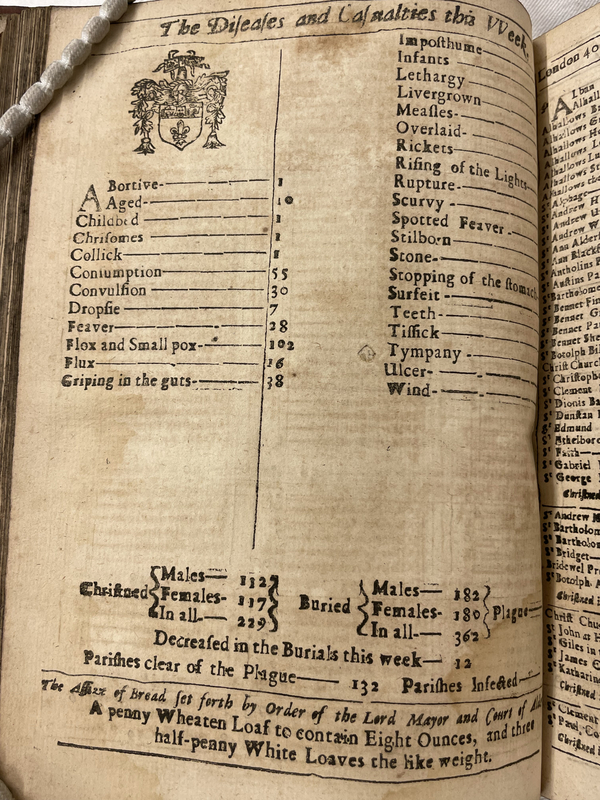 The Diſeaſes and Caſualties this VVeek.
Abortive- 1
Aged- 10
Childbed 1
Chriſomes 1
Collick 1
Conſumption 55
Convulſion 30
Dropſie 7
Feaver 28
Flox and Small pox- 102
Flux 16
Griping in the guts- 38
Impoſthume
Infants
Lethargy
Livergrown
Meaſles-
Overlaid-
Rickets-
Riſing of the Lights
Rupture-
Scurvy -
Spotted Feaver -
Stilborn
Stone-
Stopping of the ſtomach
Surfeit -
Teeth-
Tiſſick
Tympany -
Ulcer-
Wind-
Chriſtned Males— 112 Females- 117 In all- 229
Buried Males— 182 Females- 180 In all- 362 Plague—
Decreaſed in the Burials this week— 12
Pariſhes clear of the Plague— 132 Pariſhes Infected—
The Aſſize of Bread ſet forth by Order of the Lord Mayor and Court of
A penny Wheaten Loaf to contain Eight Ounces, and three
half-penny White Loaves the like weight.
London 40
Alban
Alhallows
Alhallows
Alhallows
Alhallows
Alhallows
Alhallows
Alhallows
Sᵗ Alphage
Sᵗ Andrew H
Sᵗ Andrew
Sᵗ Andrew W
Sᵗ Ann Alder
Sᵗ Ann Blackf
Sᵗ Antholins Pa
Sᵗ Auſtins Pa
Sᵗ Bartholome
Sᵗ Bennet Fin
Sᵗ Bennet G
Sᵗ Bennet Pa
Sᵗ Bennet She
Sᵗ Botolph Bil
Chriſt Church
Sᵗ Chriſtoph
Sᵗ Clement
Sᵗ Dionis Ba
Sᵗ Dunſtan
Sᵗ Edmund
Sᵗ Ethelbor
Sᵗ Faith—
Sᵗ Gabriel
Sᵗ George
Chriſtned
Sᵗ Andrew
Sᵗ Bartholom
Sᵗ Bartholom
Sᵗ Bridget—
Bridewel Pr
Sᵗ Botolph A
Chriſtned
Chriſt Chu
Sᵗ John at H
Sᵗ Giles in
Sᵗ James C
Sᵗ Katharin
Chriſtned
Sᵗ Clement
Sᵗ Paul Co
Chriſtned